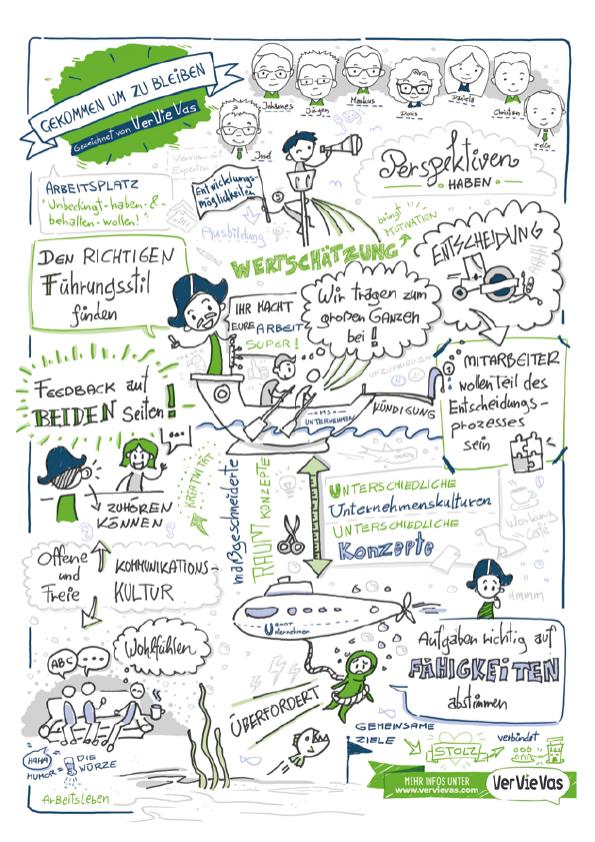 GEKOMMEN UM ZU BLEIBEN
Gezeichnet von VerVieVas
Johannes
Jürgen
Markus
Doris
Daniela
Christian
Felix
Josef
ARBEITSPLATZ
"Unbedingt-haben-&-
behalten-wollen!"
Entwicklungs-
möglichkeiten
Ausbildung
Perspektiven
HABEN
bringt
MOTIVATION
WERTSCHÄTZUNG
ENTSCHEIDUNG
DEN RICHTIGEN
Führungsstil
finden
IHR MACHT
EURE ARBEIT
SUPER!
Wir tragen zum
großen Ganzen
bei!
UNZUFRIEDEN
KÜNDIGUNG
MS
UNTERNEHMEN
MITARBEITER
wollen Teil des
Entscheidungs-
prozesses
sein
FEEDBACK auf
BEIDEN Seiten!
ZUHÖREN
KÖNNEN
KREATIVITÄT
maßgeschneiderte
RAUMKONZEPTE
UNTERSCHIEDLICHE
Unternehmenskulturen
UNTERSCHIEDLICHE
Konzepte
Working
Café
Offene
und
Freie
KOMMUNIKATIONS-
KULTUR
HMMM
U BOOT
Unternehmen
Aufgaben richtig auf
FÄHIGKEITEN
abstimmen
Wohlfühlen
ABC
ÜBERFORDERT
GEMEINSAME
ZIELE
STOLZ
verbündet
HAHA
HUMOR =
DIE
WÜRZE
Arbeitsleben
MEHR INFOS UNTER
www.vervievas.com
VerVieVas